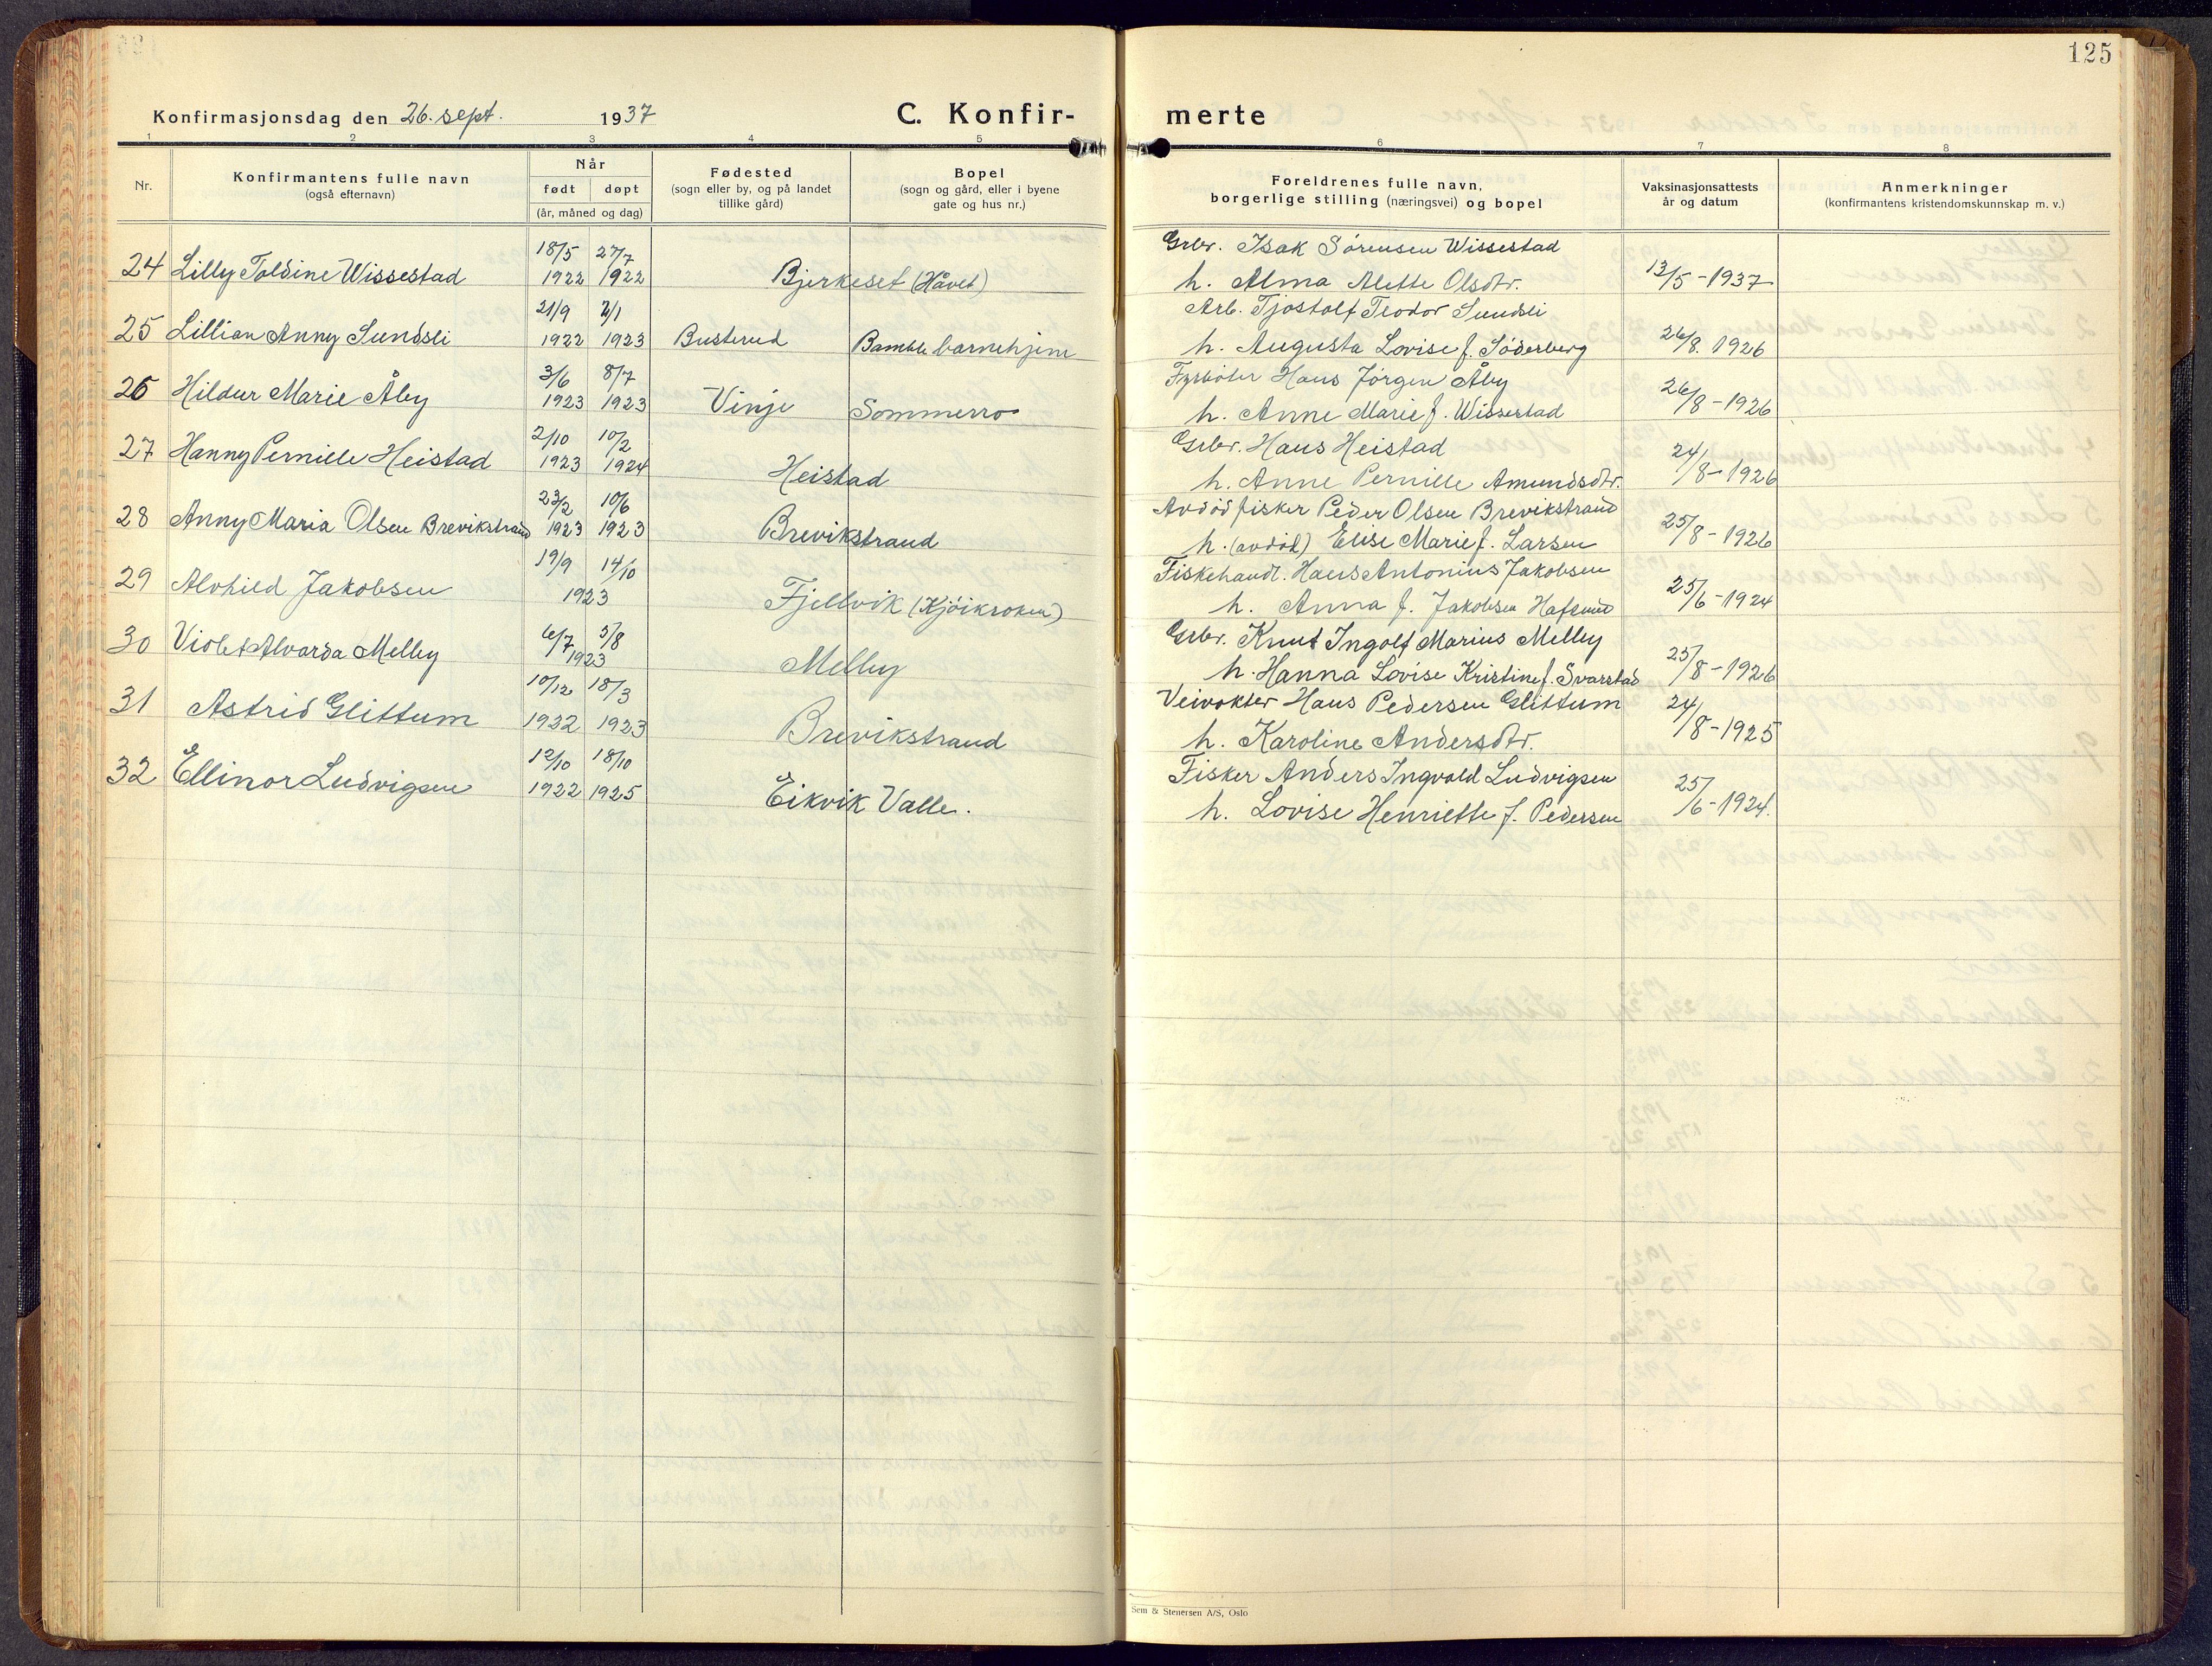 125
Konfirmasjonsdag den 26. sept. 1937
C. Konfir-
merte
1 2 3 4 5 6 7 8
Nr.
Konfirmantens fulle navn
(også efternavn)
Når
født døpt
(år, måned og dag)
Fødested
(sogn eller by, og på landet
tillike gård)
Bopel
(sogn og gård, eller i byene
gate og hus nr.)
Foreldrenes fulle navn,
borgerlige stilling (næringsvei) og bopel
Vaksinasjonsattests
år og datum
Anmerkninger
(konfirmantens kristendomskunnskap m. v.)
18/5 27/7 Grbr. Isak Sørensen Wissestad
24 Lilly Toldine Wissestad 1922 1922 Bjerkeset (Håvet) h. Alma Alette Olsdtr. 13/5 - 1937
21/9 7/1 Arb. Tjostolf Teodor Sundsli
25 Lillian Anny Sundsli 1922 1923 Busterud Bamble barnehjem h. Augusta Lovise f. Söderberg 26/8. 1926
3/6 8/7 Fyrböter Hans Jörgen Åby
26 Hildur Marie Åby 1923 1923 Vinje Sommerro h. Anne Marie f. Wissestad 26/8 - 1926
2/10 10/2 Grbr. Hans Heistad
27 Hanny Pernille Heistad 1923 1924 Heistad h. Anne Pernille Amundsdtr. 24/8 - 1926
23/2 10/6 Avdöd fisker Peder Olsen Brevikstrand
28 Anny Maria Olsen Brevikstrand 1923 1923 Brevikstrand h. (avdöd) Elise Marie f. Larsen 25/8 - 1926
19/9 14/10 Fiskehandl. Hans Antonius Jakobsen
29 Alvhild Jakobsen 1923 Fjellvik (Kjöikroken) h. Anna f. Jakobsen Hafsund 25/6 - 1924
6/7 5/8 Grbr. Knut Ingolf Marius Melby
30 Violet Alvarda Melby 1923 Melby h. Hanna Lovise Kristine f. Svarstad 25/8 - 1926
10/12 18/3 Veivokter Hans Pedersen Glittum
31 Astrid Glittum 1922 1923 Brevikstrand h. Karoline Andersdtr. 24/8 - 1925
12/10 18/10 Fisker Anders Ingvald Ludvigsen
32 Ellinor Ludvigsen 1922 1925 Eikvik Valle. h. Lovise Henriette f. Pedersen 25/6 - 1924.
Sem & Stenersen A/S, Oslo